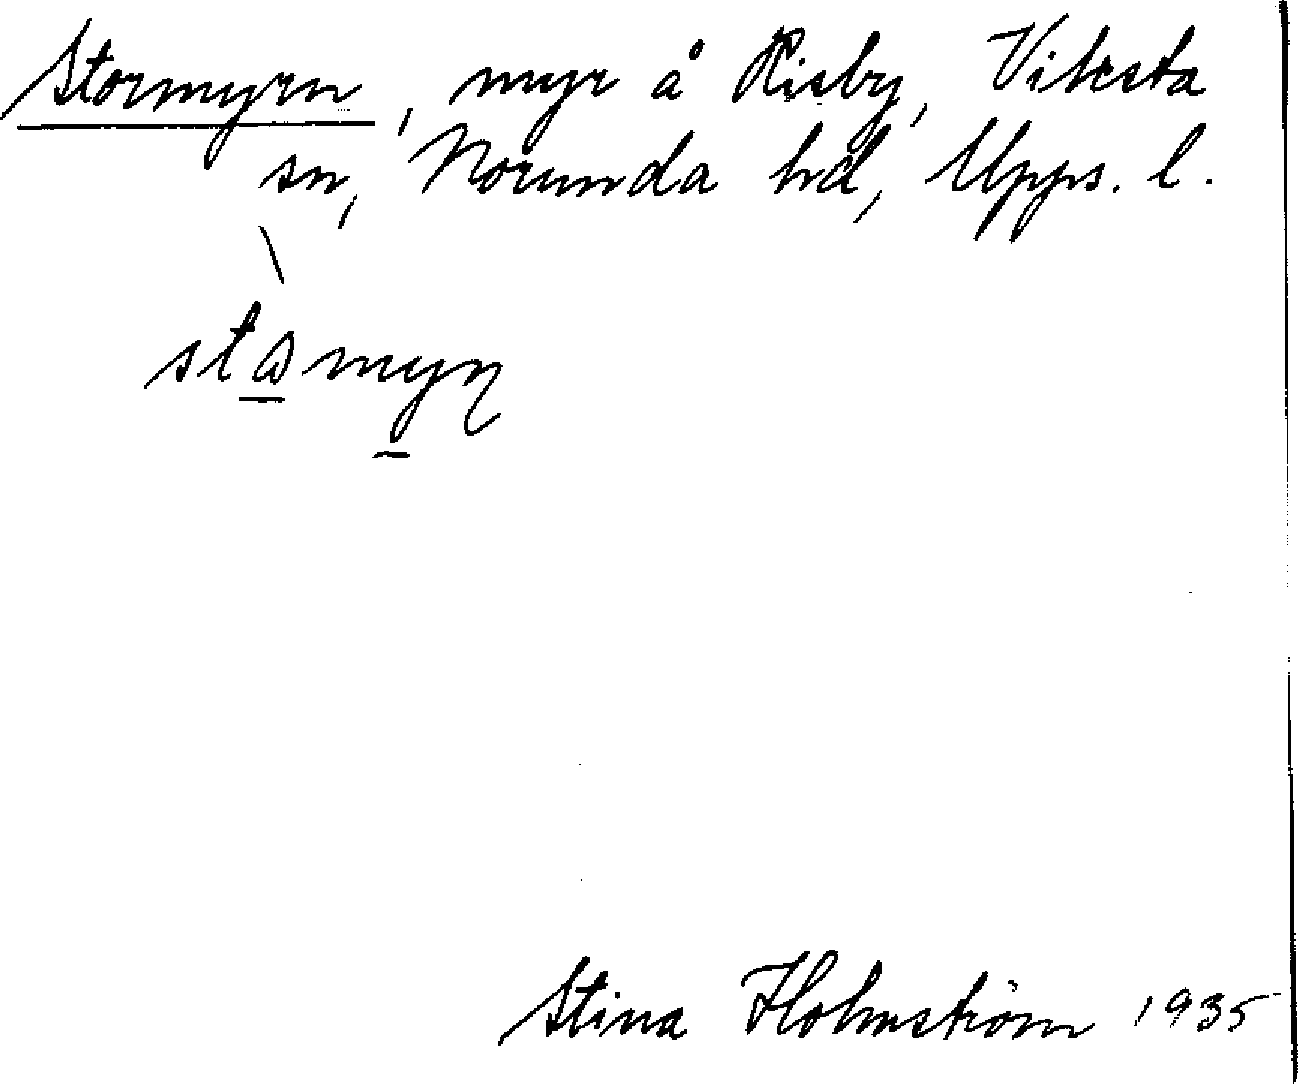 Stormyrn, myr å Risby, Viksta
sn, Norunda hd, Upps. l.
Stina Holmström 1935